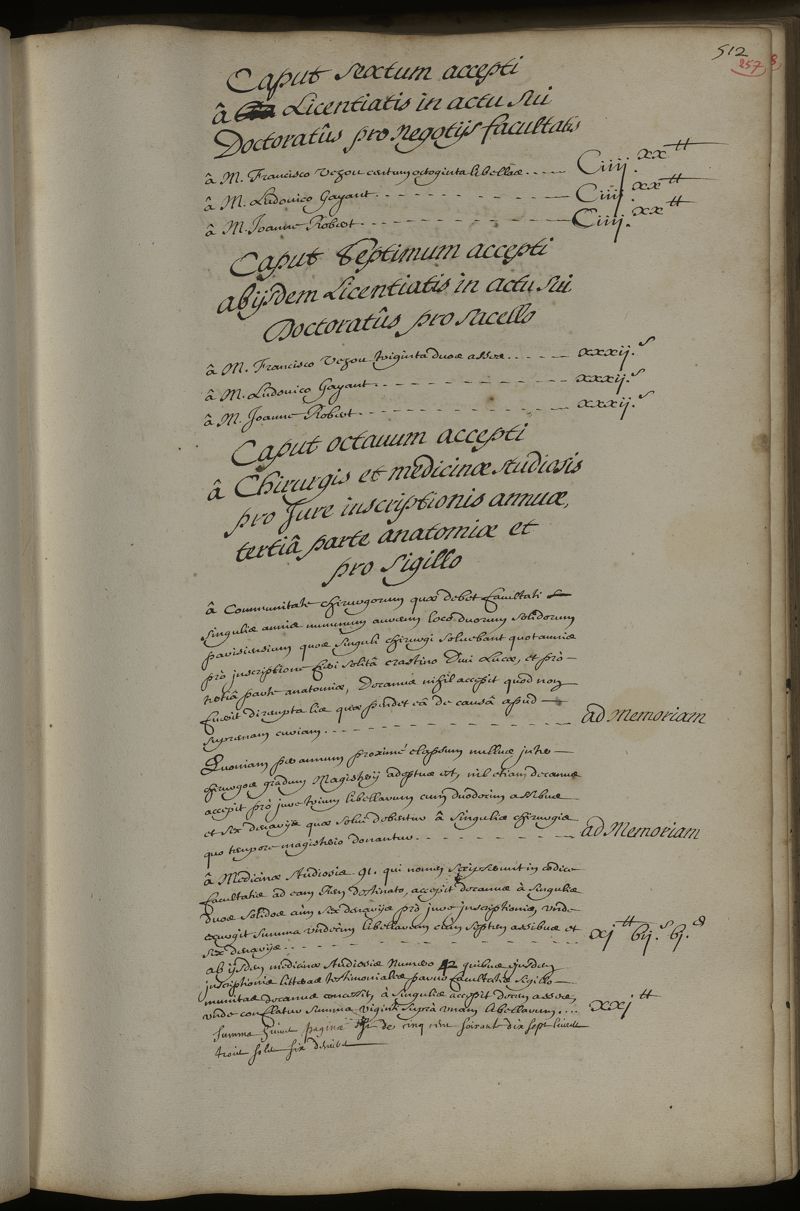 512
257
Caput sextum accepti
â Licentiatis in actu sui
Doctoratûs pro negotijs facultatis
â M. Francisco Vezou centum octoginta libellae Ciiij.xx tt
â M. Ludovico Gayant Ciiij.xx tt
â M. Joanne Robert Ciiij.xx tt
Caput Septimum accepti
ab ijsdem Licentiatis in actu sui
Doctoratûs pro sacello
â M. Francisco Vezou triginta duos asses xxxij.s
â M. Ludovico Gayant xxxij.s
â M. Joanne Robert xxxij.s
Caput octauum accepti
â Chirurgis et medicinæ studiosis
pro Jure inscriptionis annuæ,
tertiâ parte anatomiæ et
pro sigillo
â Communitate chirurgorum quæ debet facultati
singulis annis nummum aureum loco duorum solidorum
parisiensium quos singuli chirurgi soluebant quotannis
pro inscriptione fieri solitâ crastino Divi Lucæ, et pro
tertiâ parte anatomiæ, Decanus nihil accepit quod non
fuerit dirempta lis quæ pendet eâ de causâ apud
supremam curiam ad Memoriam
Quoniam per annum proximè elapsum nullus inter
chirurgos gradum Magisterij adeptus est, nil etiam decanus
accepit pro jure trium libellarum cum duodecim assibus
et sex denarijs quæ solui debentur â singulis chirurgis
quo tempore magisterio donantur ad Memoriam
â Medicinæ studiosis 91. qui nomen scripserunt in codice
facultatis ad eam rem destinato, accepit decanus â singulis
duos solidos cum sex denarijs pro jure inscriptionis, unde
exurgit summa undecim libellarum cum septem assibus et
sex denarijs xj tt bij.s bj.d
ab ijsdem medicinæ studiosis numero 42 quibus ejusdem
inscriptionis litteras testimoniales parvo facultatis sigillo
munitas decanus concessit, â singulis accepit decem asses,
unde conflatur summa viginti suprà unam libellarum xxj tt
Summa pagina de cinq cens soixant dix sept livres
trois sols six deniers